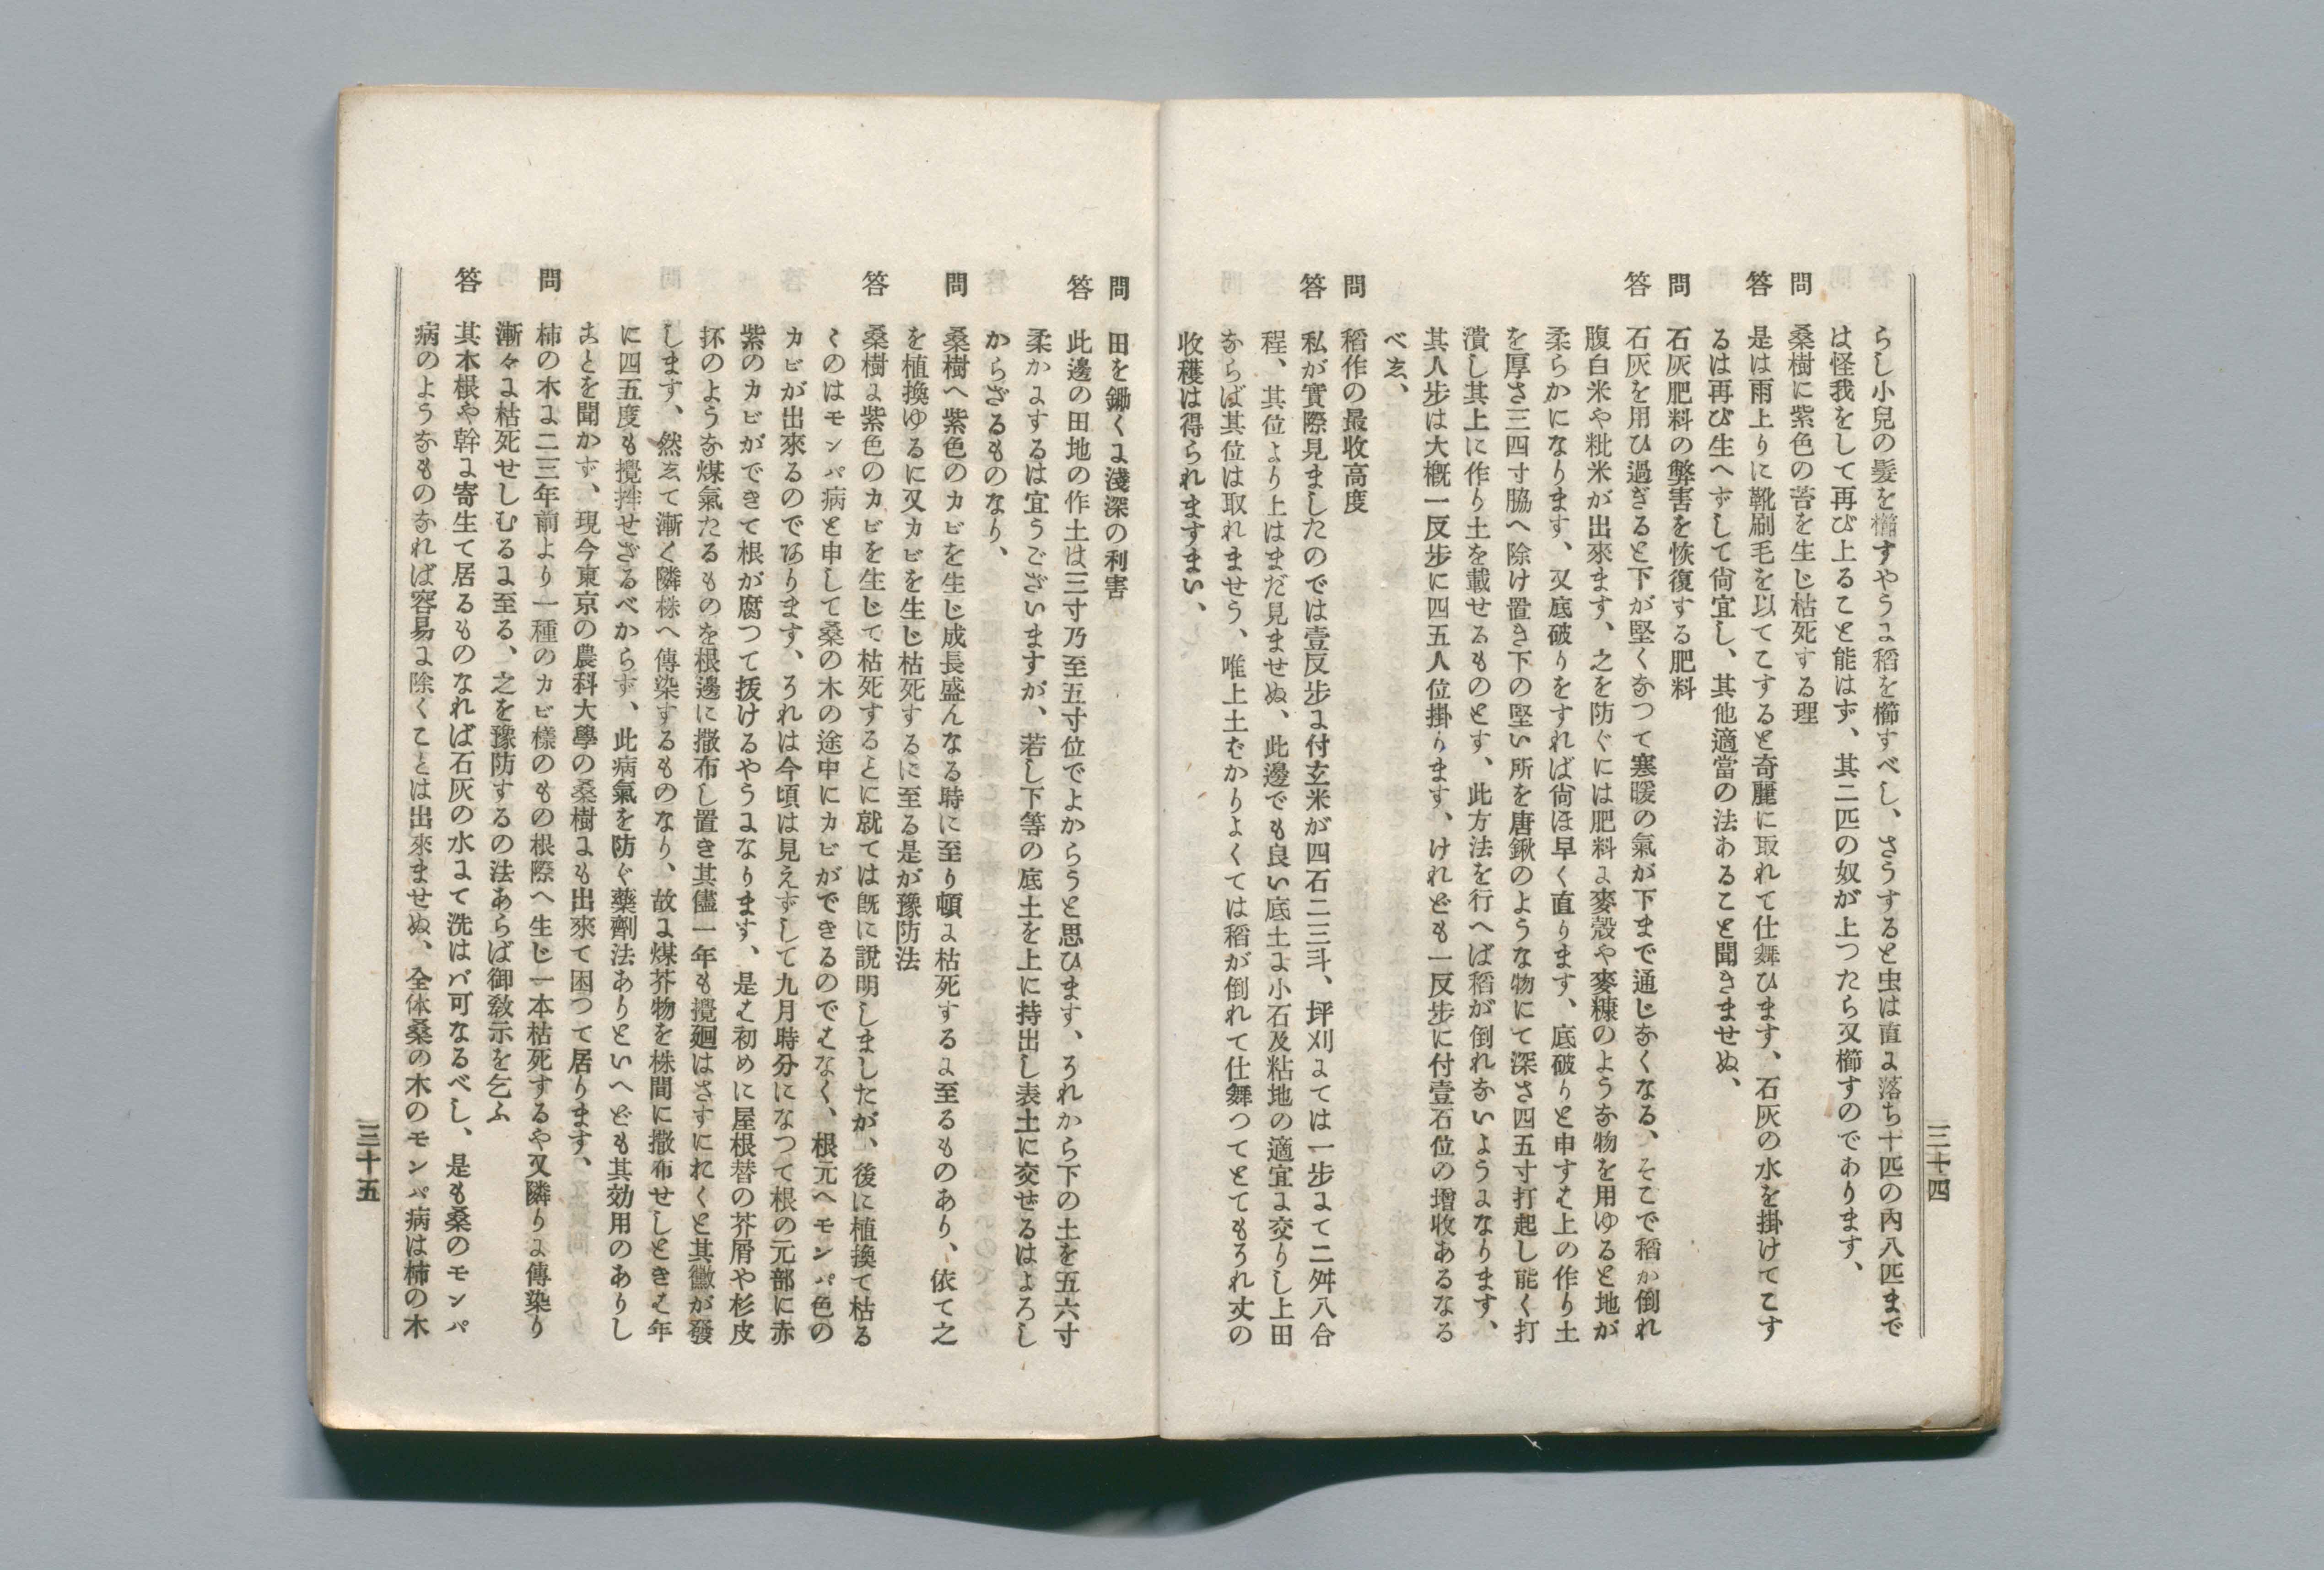 らし小兒の髮を櫛すやうに稻を櫛すべし、さうすると虫は直に落ち十匹の內八匹まで
は怪我をして再び上ること能はず、其二匹の奴が上つたら又櫛すのであります、
問 桑樹に紫色の苔を生じ枯死する理
答 是は雨上りに靴刷毛を以てこすると奇麗に取れて仕舞ひます、石灰の水を掛けてこす
るは再び生へずして尙宜し、其他適當の法あること聞きませぬ、
問 石灰肥料の弊害を恢復する肥料
答 石灰を用ひ過ぎると下が堅くなつて寒暖の氣が下まで通じなくなる、そこで稻か倒れ
腹白米や粃米が出來ます、之を防ぐには肥料に麥殼や麥糠のような物を用ゆると地が
柔らかになります、又底破りをすれば尙ほ早く直ります、底破りと申すは上の作り土
を厚さ三四寸脇へ除け置き下の堅い所を唐鍬のような物にて深さ四五寸打起し能く打
潰し其上に作り土を載せるものとす、此方法を行へば稻が倒れないようになります、
其人步は大槪一反步に四五人位掛ります、けれども一反步に付壹石位の增收あるなる
べし、
問 稻作の最收高度
答 私が實際見ましたのでは壹反步に付玄米が四石二三斗、坪刈にては一步にて二舛八合
程、其位より上はまだ見ませぬ、此邊でも良い底土に小石及粘地の適宜に交りし上田
ならば其位は取れませう、唯上土ばかりよくては稻が倒れて仕舞つてとてもそれ丈の
收穫は得られますまい、
三十四
問 田を鋤くに淺深の利害
答 此邊の田地の作土は三寸乃至五寸位でよからうと思ひます、それから下の土を五六寸
柔かにするは宜うございますが、若し下等の底土を上に持出し表土に交せるはよろし
からざるものなり、
問 桑樹へ紫色のカビを生じ成長盛んなる時に至り頓に枯死するに至るものあり、依て之
を植換ゆるに又カビを生じ枯死するに至る是が豫防法
答 桑樹に紫色のカビを生じて枯死するとに就ては旣に說明しましたが、後に植換て枯る
くのはモンパ病と申して桑の木の途中にカビができるのではなく、根元へモンパ色の
カビが出來るのであります、それは今頃は見えずして九月時分になつて根の元部に赤
紫のカビができて根が腐つて拔けるやうになります、是は初めに屋根替の芥屑や杉皮
抔のような煤氣たるものを根邊に撒布し置き其儘一年も攪廻はさずにおくと其黴が發
します、然して漸く隣株へ傳染するものなり、故に煤芥物を株間に撒布せしときは年
に四五度も攪拌せざるべからず、此病氣を防ぐ藥劑法ありといへども其効用のありし
ことを聞かず、現今東京の農科大學の桑樹にも出來て困つて居ります、
問 柿の木に二三年前より一種のカビ樣のもの根際へ生じ一本枯死するや又隣りに傳染り
漸々に枯死せしむるに至る、之を豫防するの法あらば御敎示を乞ふ
答 其木根や幹に寄生て居るものなれば石灰の水にて洗はバ可なるべし、是も桑のモンパ
病のようなものなれば容易に除くことは出來ませぬ、全体桑の木のモンパ病は柿の木
三十五